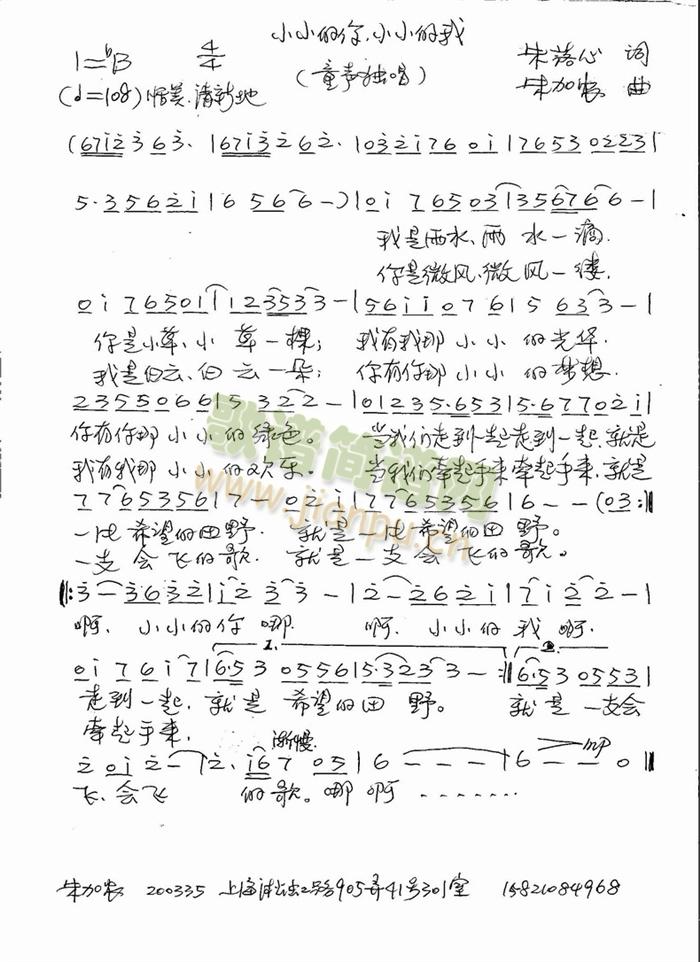 小小的你,小小的我
(童声独唱)
1=bB 4/4
朱落心 词
朱加农 曲
(♩=108) 恬美、清新地
(671̇2̇3̇ 6 3̇. | 671̇3̇2̇ 6 2̇. | 03̇2̇1̇76 01̇ | 76530223 |
5·35621̇ | 6 566 - ) | 01̇ 76503 | 356766 - |
我是雨水、雨 水一滴.
你是微风、微风一缕.
01̇ 76501 | 123533 - | 561̇1̇07 61 | 5 633 - |
你是小草、小 草一棵; 我有我那 小小 的光华.
我是白云、白 云一朵; 你有你那小小 的梦想.
2355066 | 5 322 - | 01235·653 | 5·677021̇ |
你有你那 小小的绿色。 当我们走到一起走到一起,就是
我有我那 小小的欢乐。 当我们牵起手来牵起手来,就是
776535617 - 02̇1̇ | 776535616 - - (03:||
一片希望的田野. 就是一片希望的田野。
一支会飞的歌. 就是一支会飞的歌。
||:3̇ - 3̇63̇2̇ | 1̇2̇ 3̇3̇ - | 2̇ - 2̇62̇1̇ | 71̇2̇2̇ - |
啊. 小小的你 哪. 啊. 小小的我啊.
1.
2.
01̇761̇7 | 6·53 05561 | 5·3233 - :|| 6·5305531
走到一起, 就是 希望的田 野。 就是 一支会
牵起手来,
渐慢
mp
2̇ 01̇2̇ - | 2̇. 1̇67 05 | 6 - - - | 6 - - 0 ||
飞,会飞 的歌。哪 啊 .......
朱加农 200335 905弄41号301室 15821084968
歌谱简谱网
www.jianpu.cn